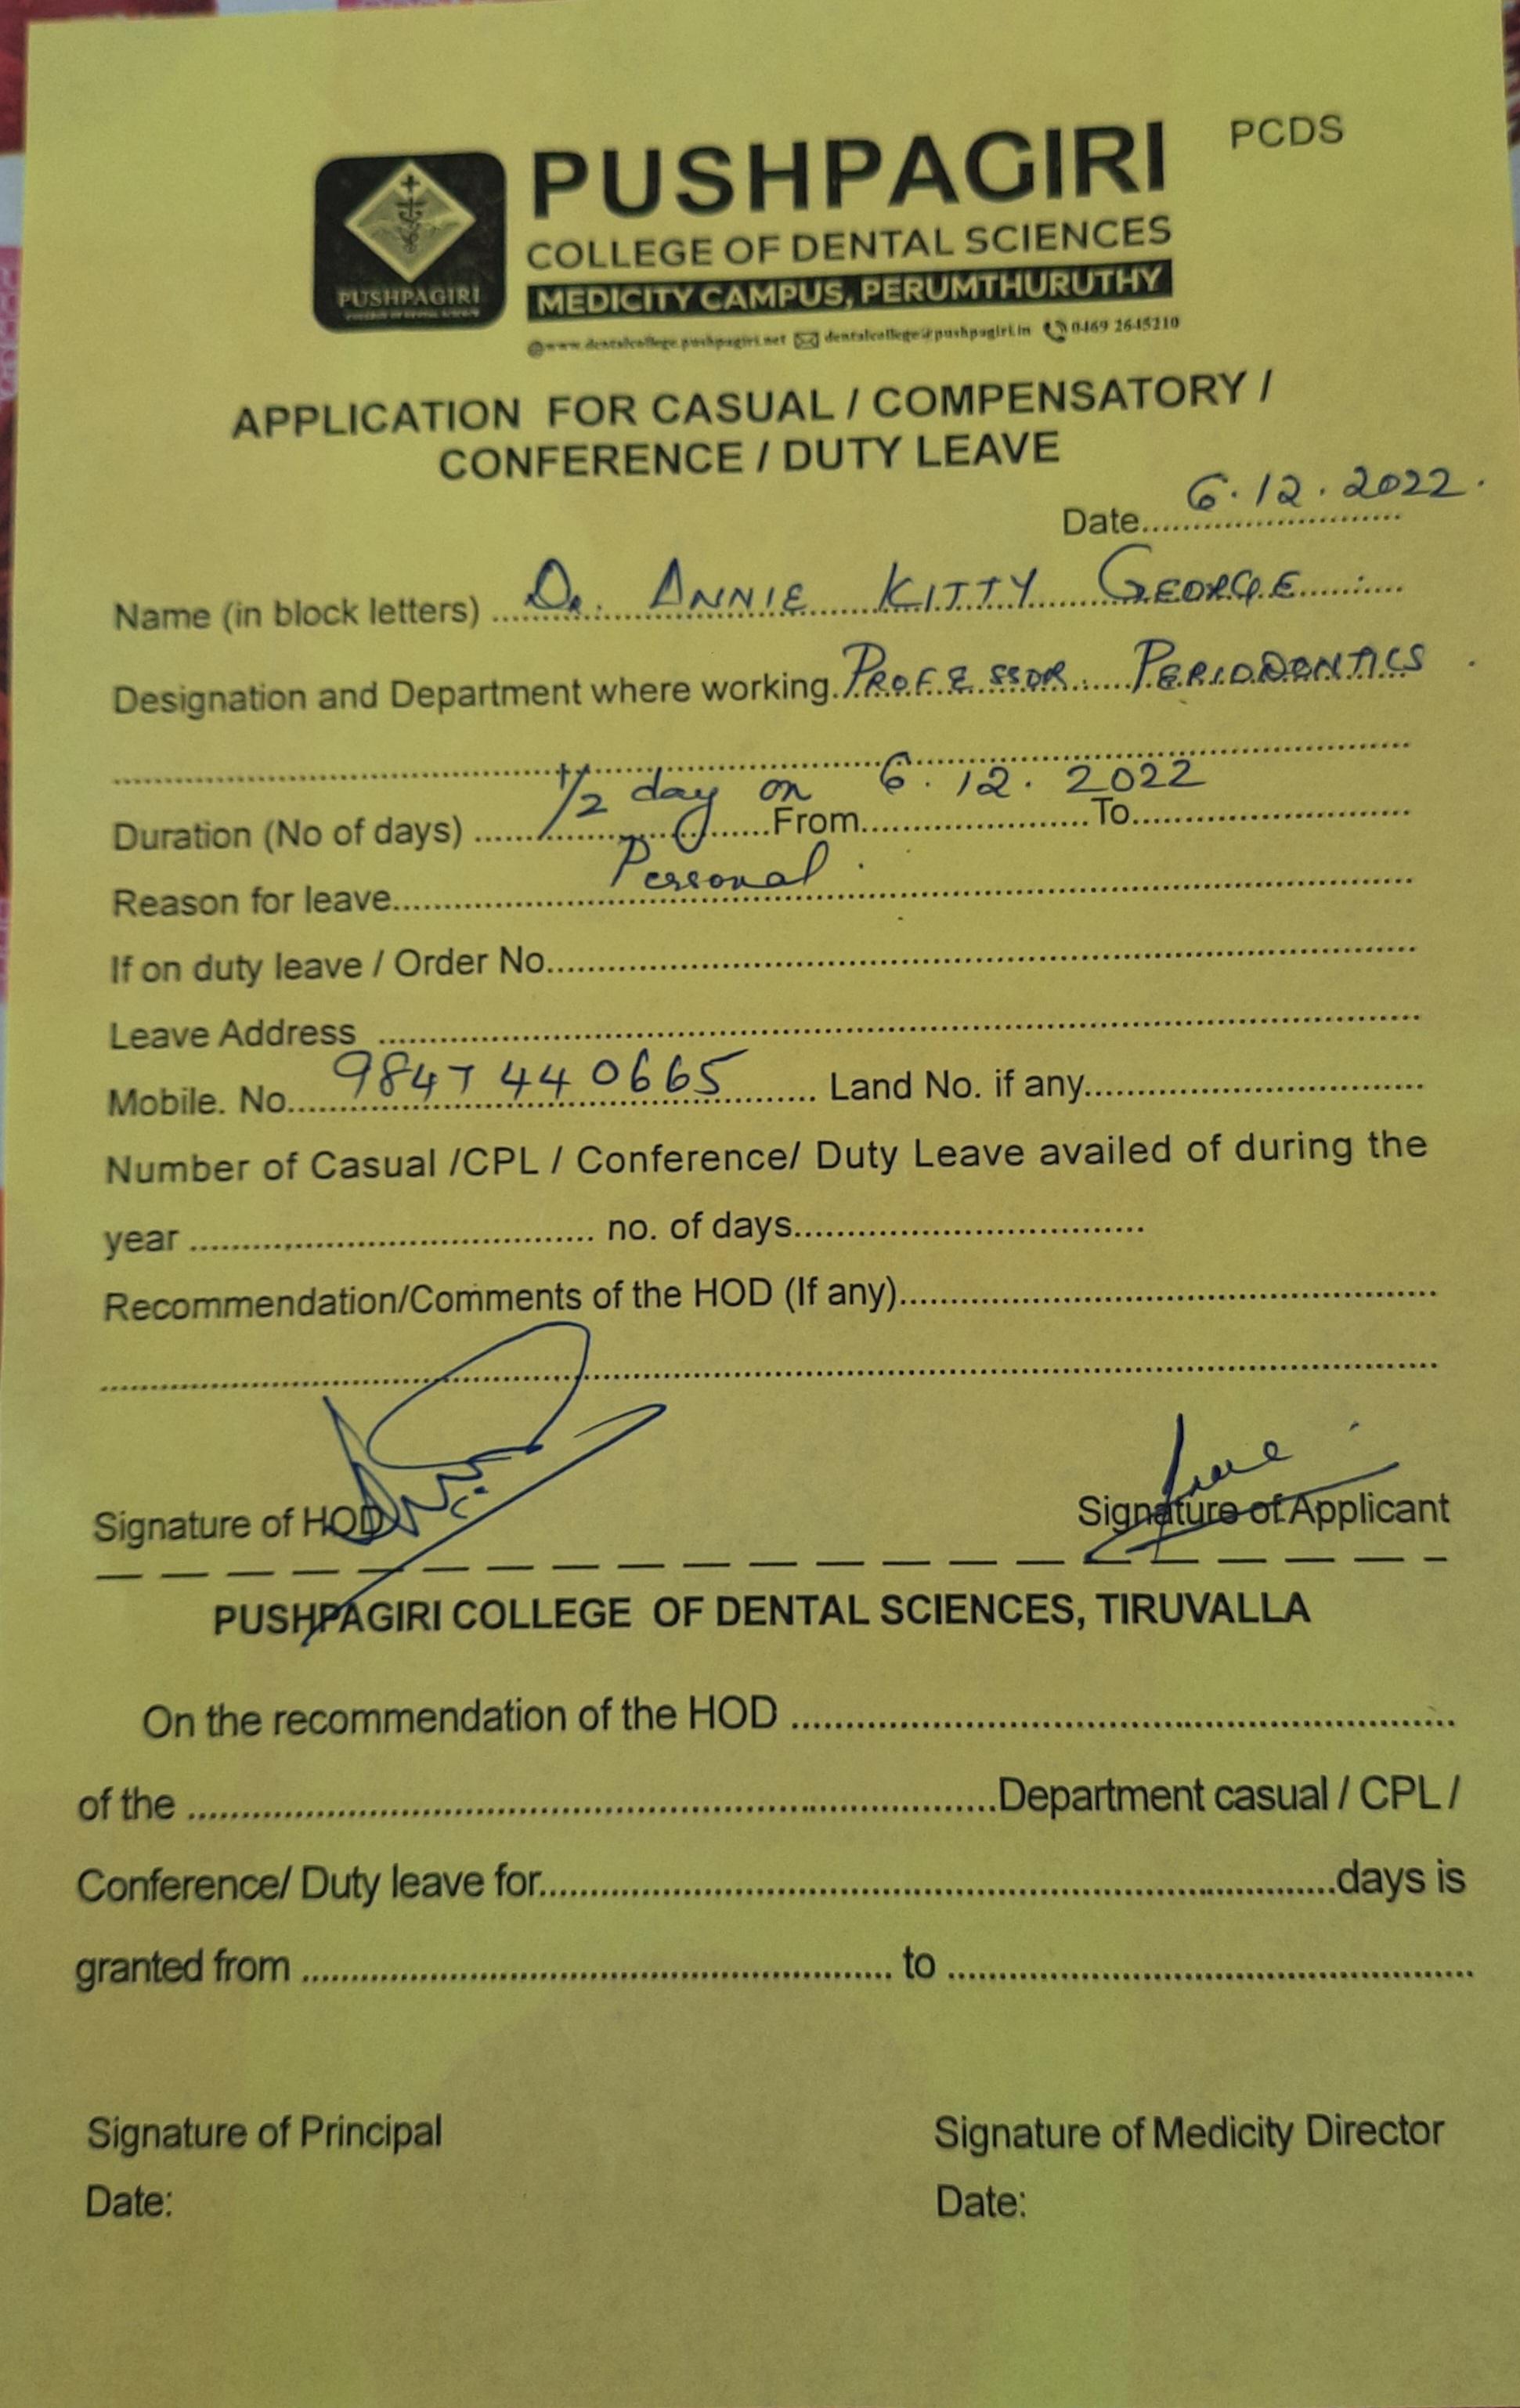 PCDS
PUSHPAGIRI
COLLEGE OF DENTAL SCIENCES
MEDICITY CAMPUS, PERUMTHURUTHY
PUSHPAGIRI
www.dentalcollege.pushpagiri.net dentalcollege@pushpagiri.in 0469 2645210
APPLICATION FOR CASUAL / COMPENSATORY /
CONFERENCE / DUTY LEAVE
Date 6.12.2022.
Name (in block letters) Dr. ANNIE KITTY GEORGE
Designation and Department where working PROFESSOR PERIODONTICS.
1/2 day on 6.12.2022
Duration (No of days) From To
Reason for leave Personal.
If on duty leave / Order No.
Leave Address
Mobile. No. 9847440665 Land No. if any
Number of Casual /CPL / Conference/ Duty Leave availed of during the
year no. of days
Recommendation/Comments of the HOD (If any)
Signature of HOD Signature of Applicant
PUSHPAGIRI COLLEGE OF DENTAL SCIENCES, TIRUVALLA
On the recommendation of the HOD
of the Department casual / CPL /
Conference/ Duty leave for days is
granted from to
Signature of Principal Signature of Medicity Director
Date: Date: